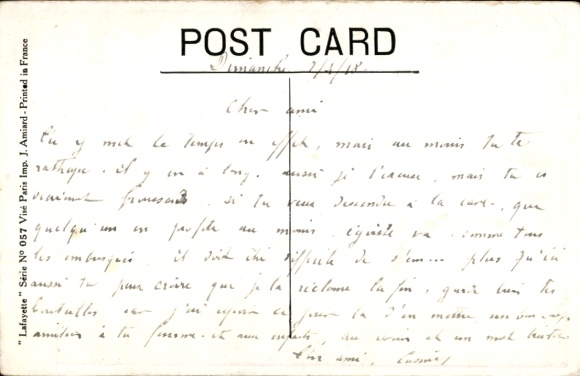 POST CARD
Dimanche
Cher ami
Tu y met le temps en effet, mais au moins tu te
rattrape. Il y en a long. aussi je t'excuse, mais tu es
vraiment. Si tu veux descendre à la cave, que
quelqu'un en profite au moins. égoïste va. comme tous
les embusqués. Il doit être difficile de plus qu'ici
aussi tu peux croire que je la réclame la fin, garde bien tes
bouteilles car j'ai ce jour là d'en mettre un
amitiés à ta femme et aux enfants, au revoir et un
Ton ami,
"Lafayette" Série No 057 Visé Paris Imp. J. Amiard - Printed in France